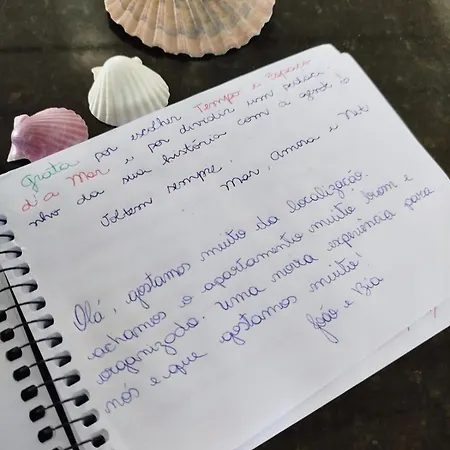 Gratia por escolher Tempo e Espaço
d'a Mar e por dividir um pedaci-
nho da sua história com a gente!
Voltem sempre.
Mar, Amora e Nat
Olá, gostamos muito da localização.
achamos o apartamento muito bom e
organizado. Uma nova experiência para
nós e que gostamos muito!
João e Bia